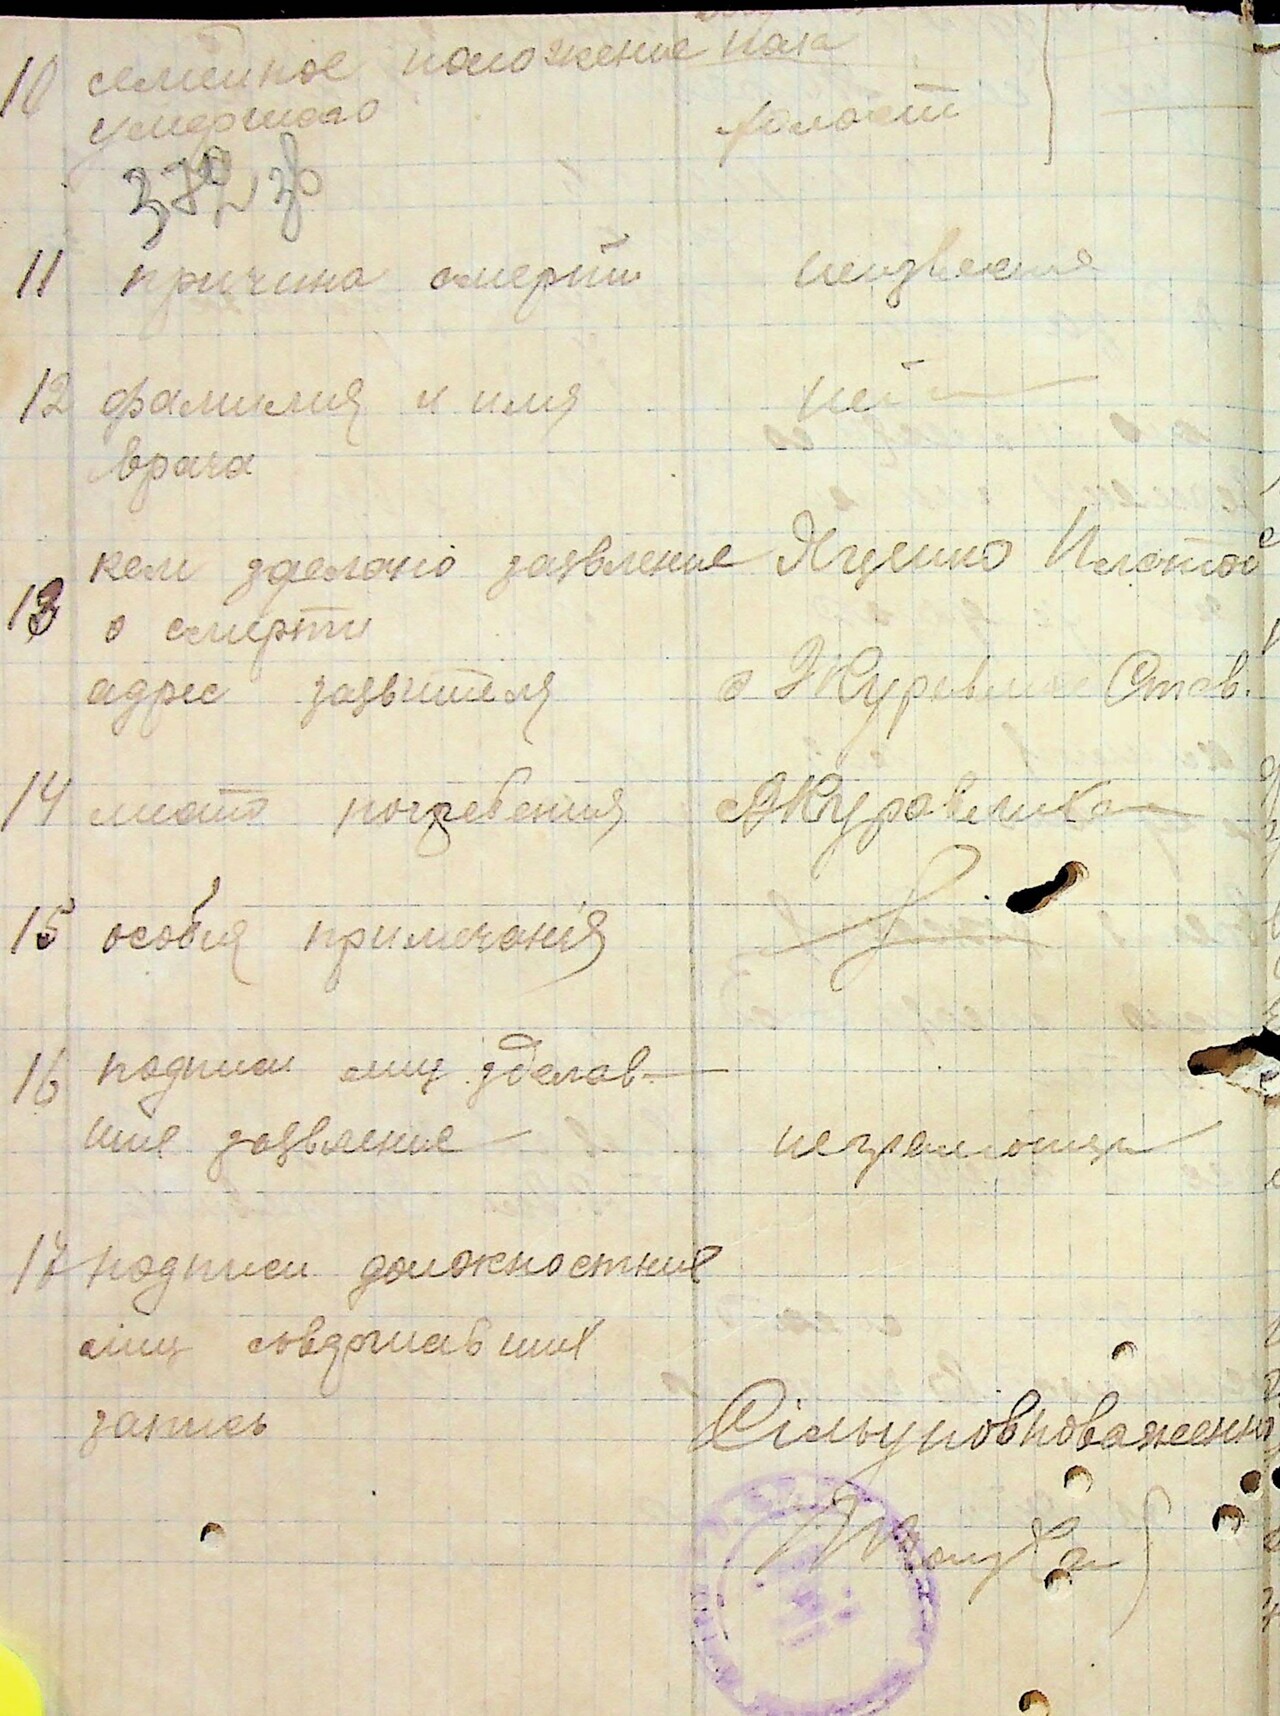 10 семейное положение
умершого холост
11 причина смерти неизвестна
12 фамилия и имя нет
врача
кем зделано заявление Яценко
13 о смерти
адрес заявителя с Журавлика Став.
14 место погребения с Журавлика
15 особия примечания
16 подписи лиц зделав-
шие заявление неграмотни
17 подписи должностние
лиц совершавших
запись Сільуповноважений